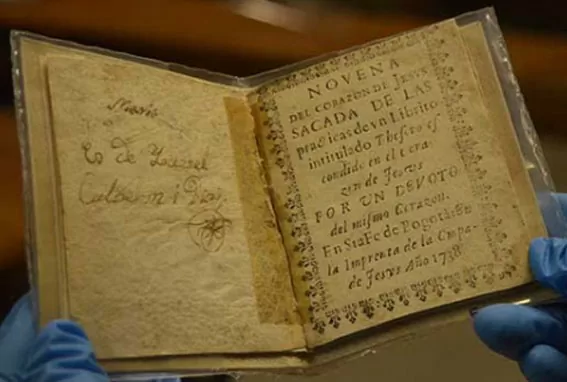 Es de Ysavel
Calderon i
NOVENA
DEL CORAZON DE JESUS
SACADA DE LAS
practicas de vn Librito
intitulado Thesoro es
condido en el Cora
zon de Jesus
POR UN DEVOTO
del mismo Corazon.
En StaFe de Bogotá: En
la Imprenta de la Compa
de Jesvs Año 1738